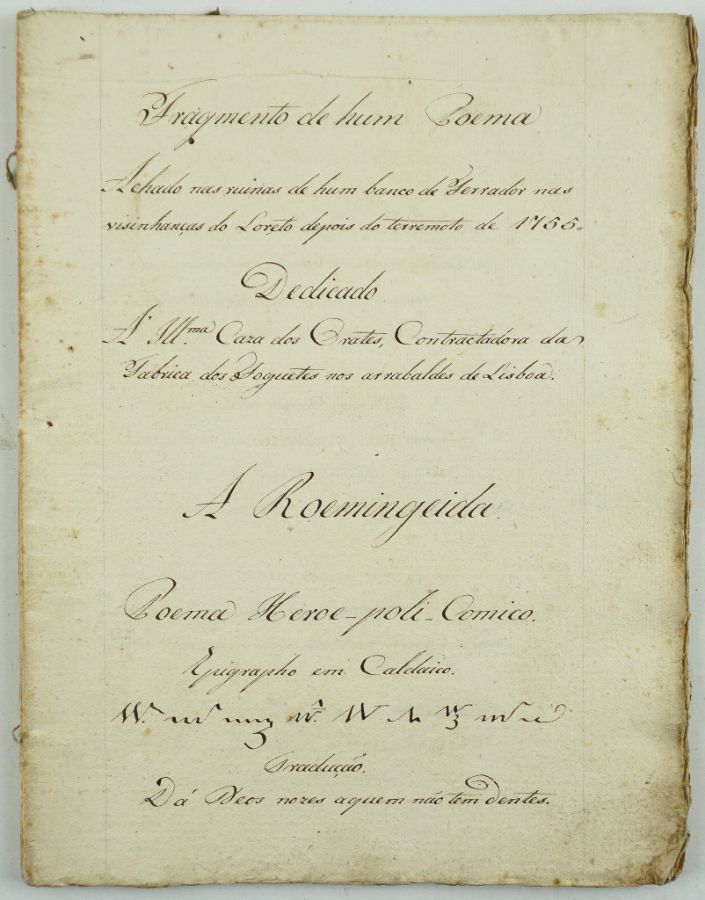 Fragmento de hum Poema
Achado nas ruinas de hum banco de Ferrador nas
visinhanças do Loreto depois do terremoto de 1755.
Dedicado
A' Ill.ma Caza dos Orates, Contractadora da
Fabrica dos Foguetes nos arrabaldes de Lisboa.
A Roemingeida.
Poema Heroe-poli-Comico.
Epigrapho em Caldaico.
Tradução.
Dá Deos nozes a quem não tem dentes.